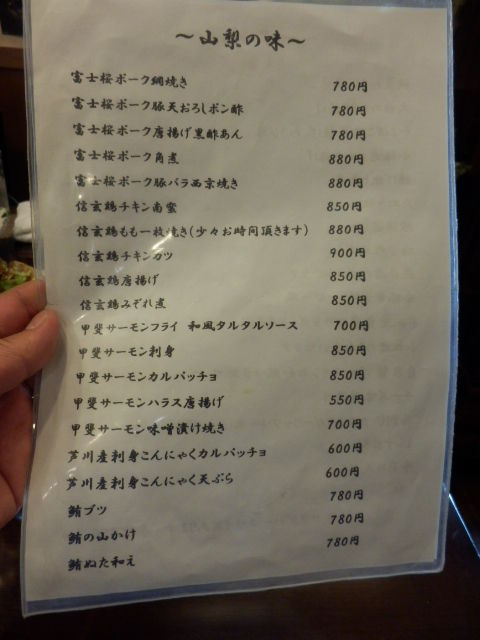 ～山梨の味～
富士桜ポーク網焼き 780円
富士桜ポーク豚天おろしポン酢 780円
富士桜ポーク唐揚げ黒酢あん 780円
富士桜ポーク角煮 880円
富士桜ポーク豚バラ西京焼き 880円
信玄鶏チキン南蛮 850円
信玄鶏もも一枚焼き(少々お時間頂きます) 880円
信玄鶏チキンカツ 900円
信玄鶏唐揚げ 850円
信玄鶏みぞれ煮 850円
甲斐サーモンフライ 和風タルタルソース 700円
甲斐サーモン刺身 850円
甲斐サーモンカルパッチョ 850円
甲斐サーモンハラス唐揚げ 550円
甲斐サーモン味噌漬け焼き 700円
芦川産刺身こんにゃくカルパッチョ 600円
芦川産刺身こんにゃく天ぷら 600円
鮪ブツ 780円
鮪の山かけ 780円
鮪ぬた和え 780円